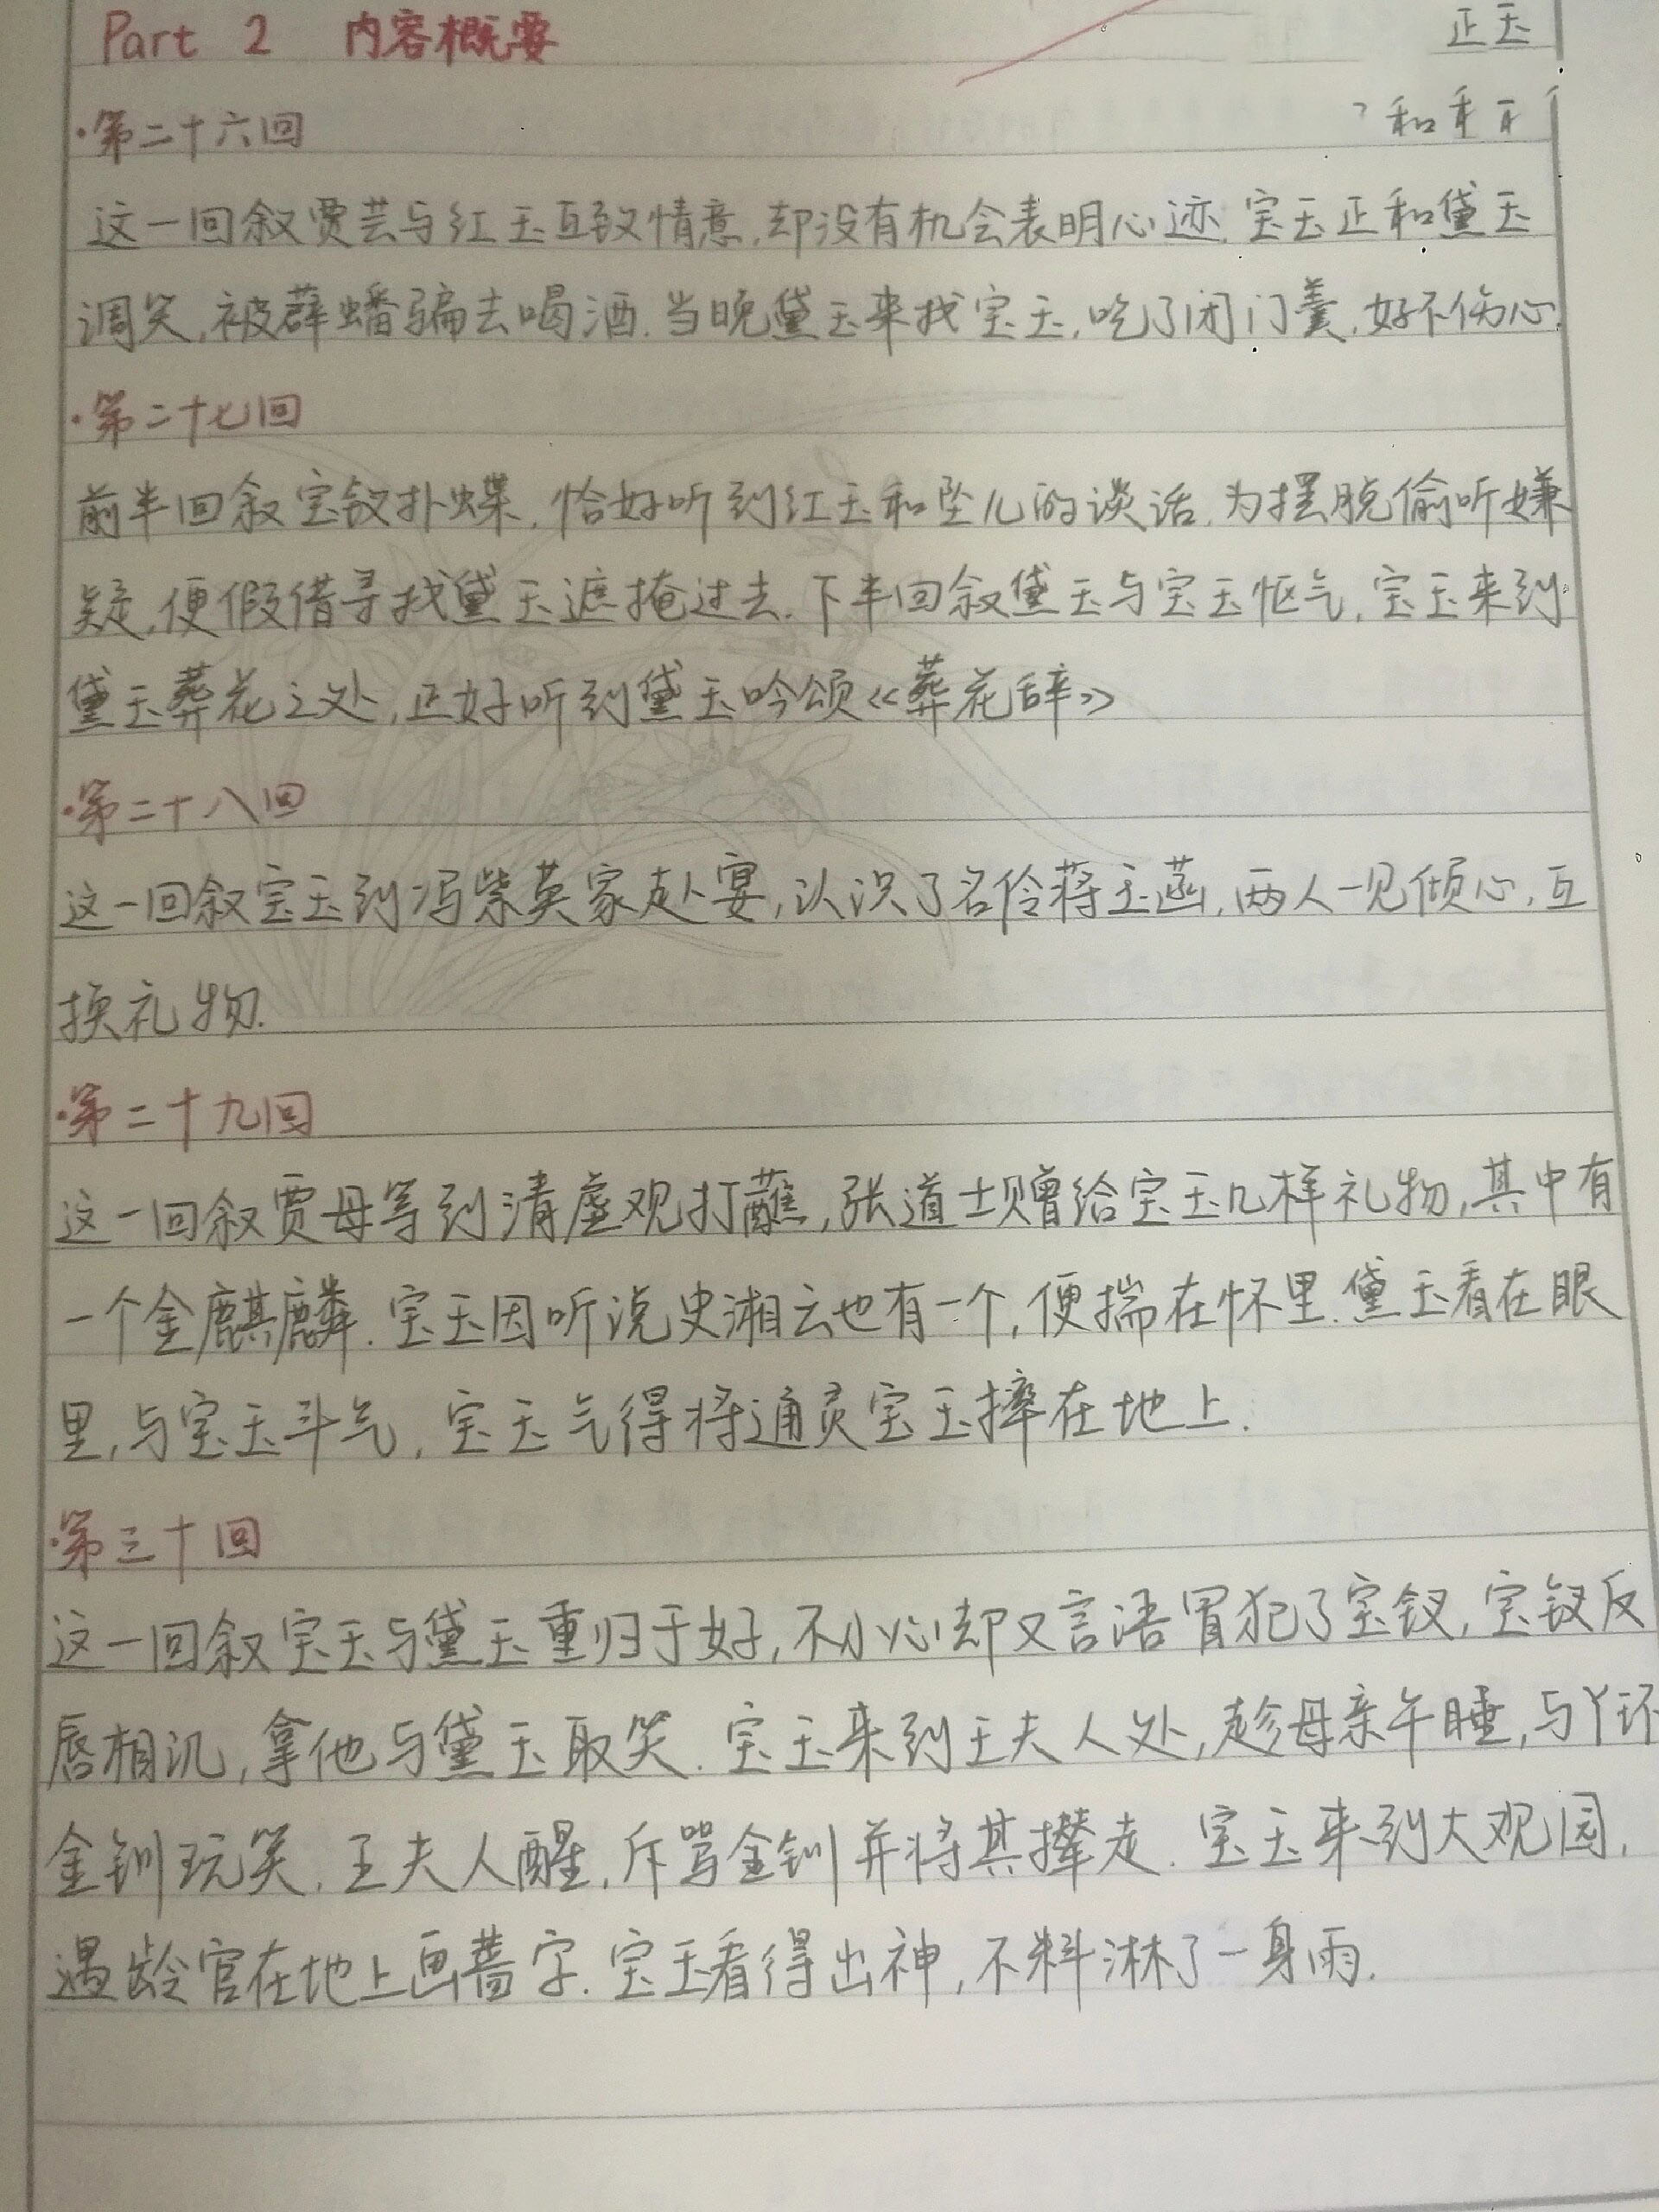 Part 2 内容概要
正玉
和
·第二十六回
这一回叙贾芸与红玉互致情意,却没有机会表明心迹.宝玉正和黛玉
调笑,被薛蟠骗去喝酒.当晚黛玉来找宝玉,吃了闭门羹,好不伤心.
·第二十七回
前半回叙宝钗扑蝶,恰好听到红玉和坠儿的谈话,为摆脱偷听嫌
疑,便假借寻找黛玉遮掩过去.下半回叙黛玉与宝玉怄气,宝玉来到
黛玉葬花之处,正好听到黛玉吟颂《葬花辞》
·第二十八回
这一回叙宝玉到冯紫英家赴宴,认识了名伶蒋玉菡,两人一见倾心,互
换礼物.
·第二十九回
这一回叙贾母等到清虚观打蘸,张道士赠给宝玉几样礼物,其中有
一个金麒麟.宝玉因听说史湘云也有一个,便揣在怀里.黛玉看在眼
里,与宝玉斗气,宝玉气得将通灵宝玉摔在地上.
·第三十回
这一回叙宝玉与黛玉重归于好,不小心却又言语冒犯了宝钗,宝钗反
唇相讥,拿他与黛玉取笑.宝玉来到王夫人处,趁母亲午睡,与丫环
金钏玩笑.王夫人醒,斥骂金钏并将其撵走.宝玉来到大观园,
遇龄官在地上画蔷字.宝玉看得出神,不料淋了一身雨.